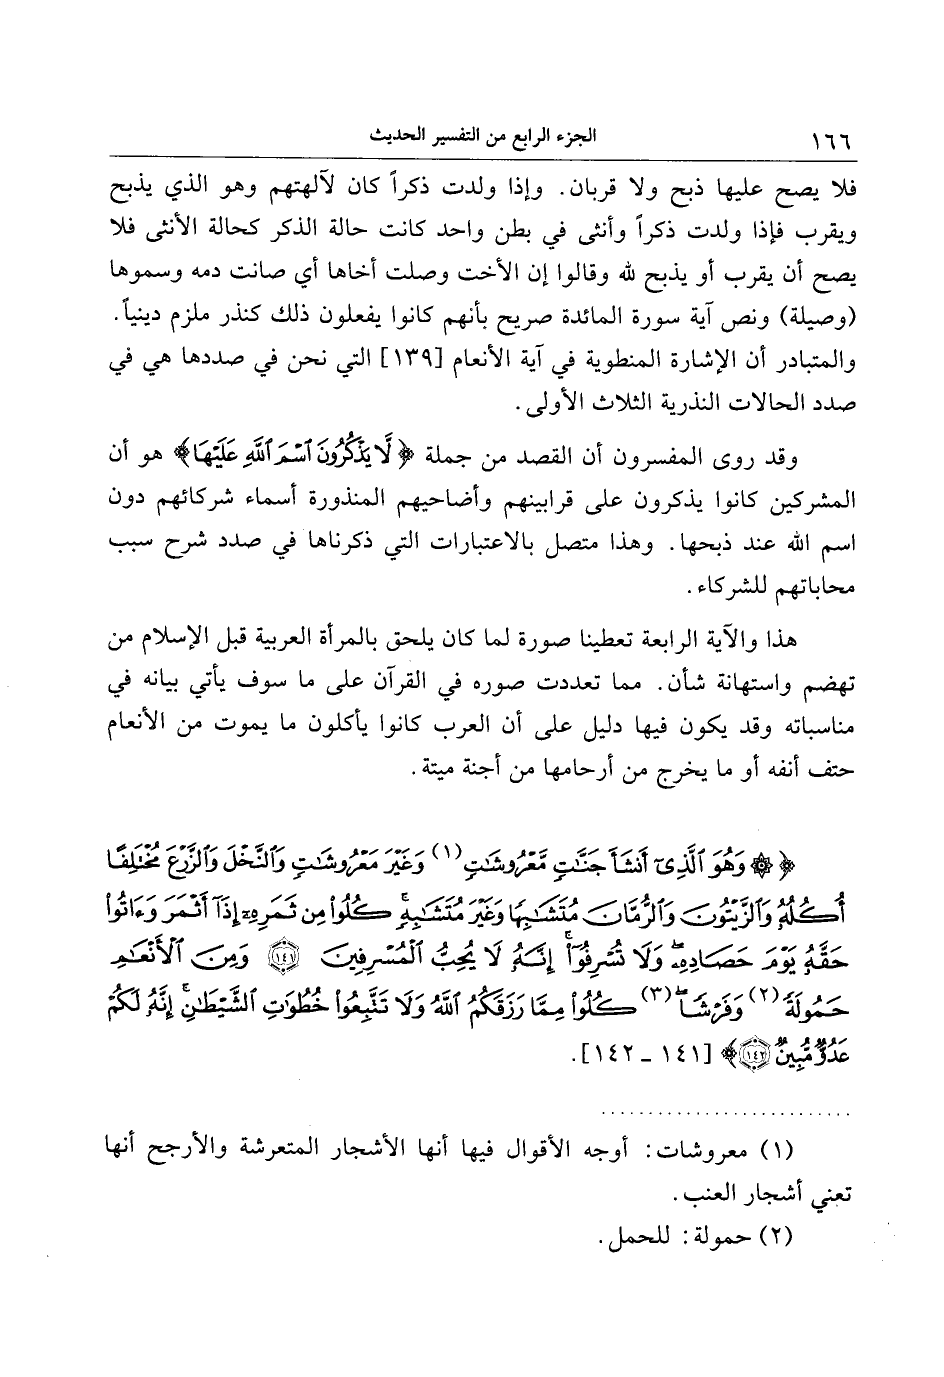 ١٦٦ الجزء الرابع من التفسير الحديث
فلا يصح عليها ذبح ولا قربان. وإذا ولدت ذكراً كان لآلهتهم وهو الذي يذبح
ويقرب فإذا ولدت ذكراً وأنثى في بطن واحد كانت حالة الذكر كحالة الأنثى فلا
يصح أن يقرب أو يذبح لله وقالوا إن الأخت وصلت أخاها أي صانت دمه وسموها
(وصيلة) ونص آية سورة المائدة صريح بأنهم كانوا يفعلون ذلك كنذر ملزم دينياً.
والمتبادر أن الإشارة المنطوية في آية الأنعام [١٣٩] التي نحن في صددها هي في
صدد الحالات النذرية الثلاث الأولى.
وقد روى المفسرون أن القصد من جملة ﴿لَّا يَذْكُرُونَ ٱسْمَ ٱللَّهِ عَلَيْهَا﴾ هو أن
المشركين كانوا يذكرون على قرابينهم وأضاحيهم المنذورة أسماء شركائهم دون
اسم الله عند ذبحها. وهذا متصل بالاعتبارات التي ذكرناها في صدد شرح سبب
محاباتهم للشركاء.
هذا والآية الرابعة تعطينا صورة لما كان يلحق بالمرأة العربية قبل الإسلام من
تهضم واستهانة شأن. مما تعددت صوره في القرآن على ما سوف يأتي بيانه في
مناسباته وقد يكون فيها دليل على أن العرب كانوا يأكلون ما يموت من الأنعام
حتف أنفه أو ما يخرج من أرحامها من أجنة ميتة.
﴿۞ وَهُوَ ٱلَّذِىٓ أَنشَأَ جَنَّٰتٍ مَّعْرُوشَٰتٍ (١) وَغَيْرَ مَعْرُوشَٰتٍ وَٱلنَّخْلَ وَٱلزَّرْعَ مُخْتَلِفًا
أُكُلُهُۥ وَٱلزَّيْتُونَ وَٱلرُّمَّانَ مُتَشَٰبِهًا وَغَيْرَ مُتَشَٰبِهٍۚ كُلُوا۟ مِن ثَمَرِهِۦٓ إِذَآ أَثْمَرَ وَءَاتُوا۟
حَقَّهُۥ يَوْمَ حَصَادِهِۦۖ وَلَا تُسْرِفُوٓا۟ۚ إِنَّهُۥ لَا يُحِبُّ ٱلْمُسْرِفِينَ ١٤١ وَمِنَ ٱلْأَنْعَٰمِ
حَمُولَةً (٢) وَفَرْشًاۚ (٣) كُلُوا۟ مِمَّا رَزَقَكُمُ ٱللَّهُ وَلَا تَتَّبِعُوا۟ خُطُوَٰتِ ٱلشَّيْطَٰنِۚ إِنَّهُۥ لَكُمْ
عَدُوٌّ مُّبِينٌ ١٤٢﴾ [١٤١ ـ ١٤٢].
(١) معروشات: أوجه الأقوال فيها أنها الأشجار المتعرشة والأرجح أنها
تعني أشجار العنب.
(٢) حمولة: للحمل.